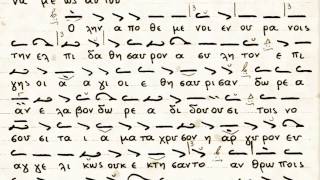 να με ως αυ του
Ο λην α πο θε με νοι εν ου ρα νοις
την ελ πι δα θη σαυ ρον α συ λη τον ε πι
γης οι α α γι οι ε θη σαυ ρι σαν δω ρε α
αν ε λα βον δω ρε α δι δου ου σι τοις νο
σου σι τα ι α μα τα χρυ σον η αρ γυ ρον ευ
αγ γε λι κως ουκ ε κτη σαν το αν θρω ποις